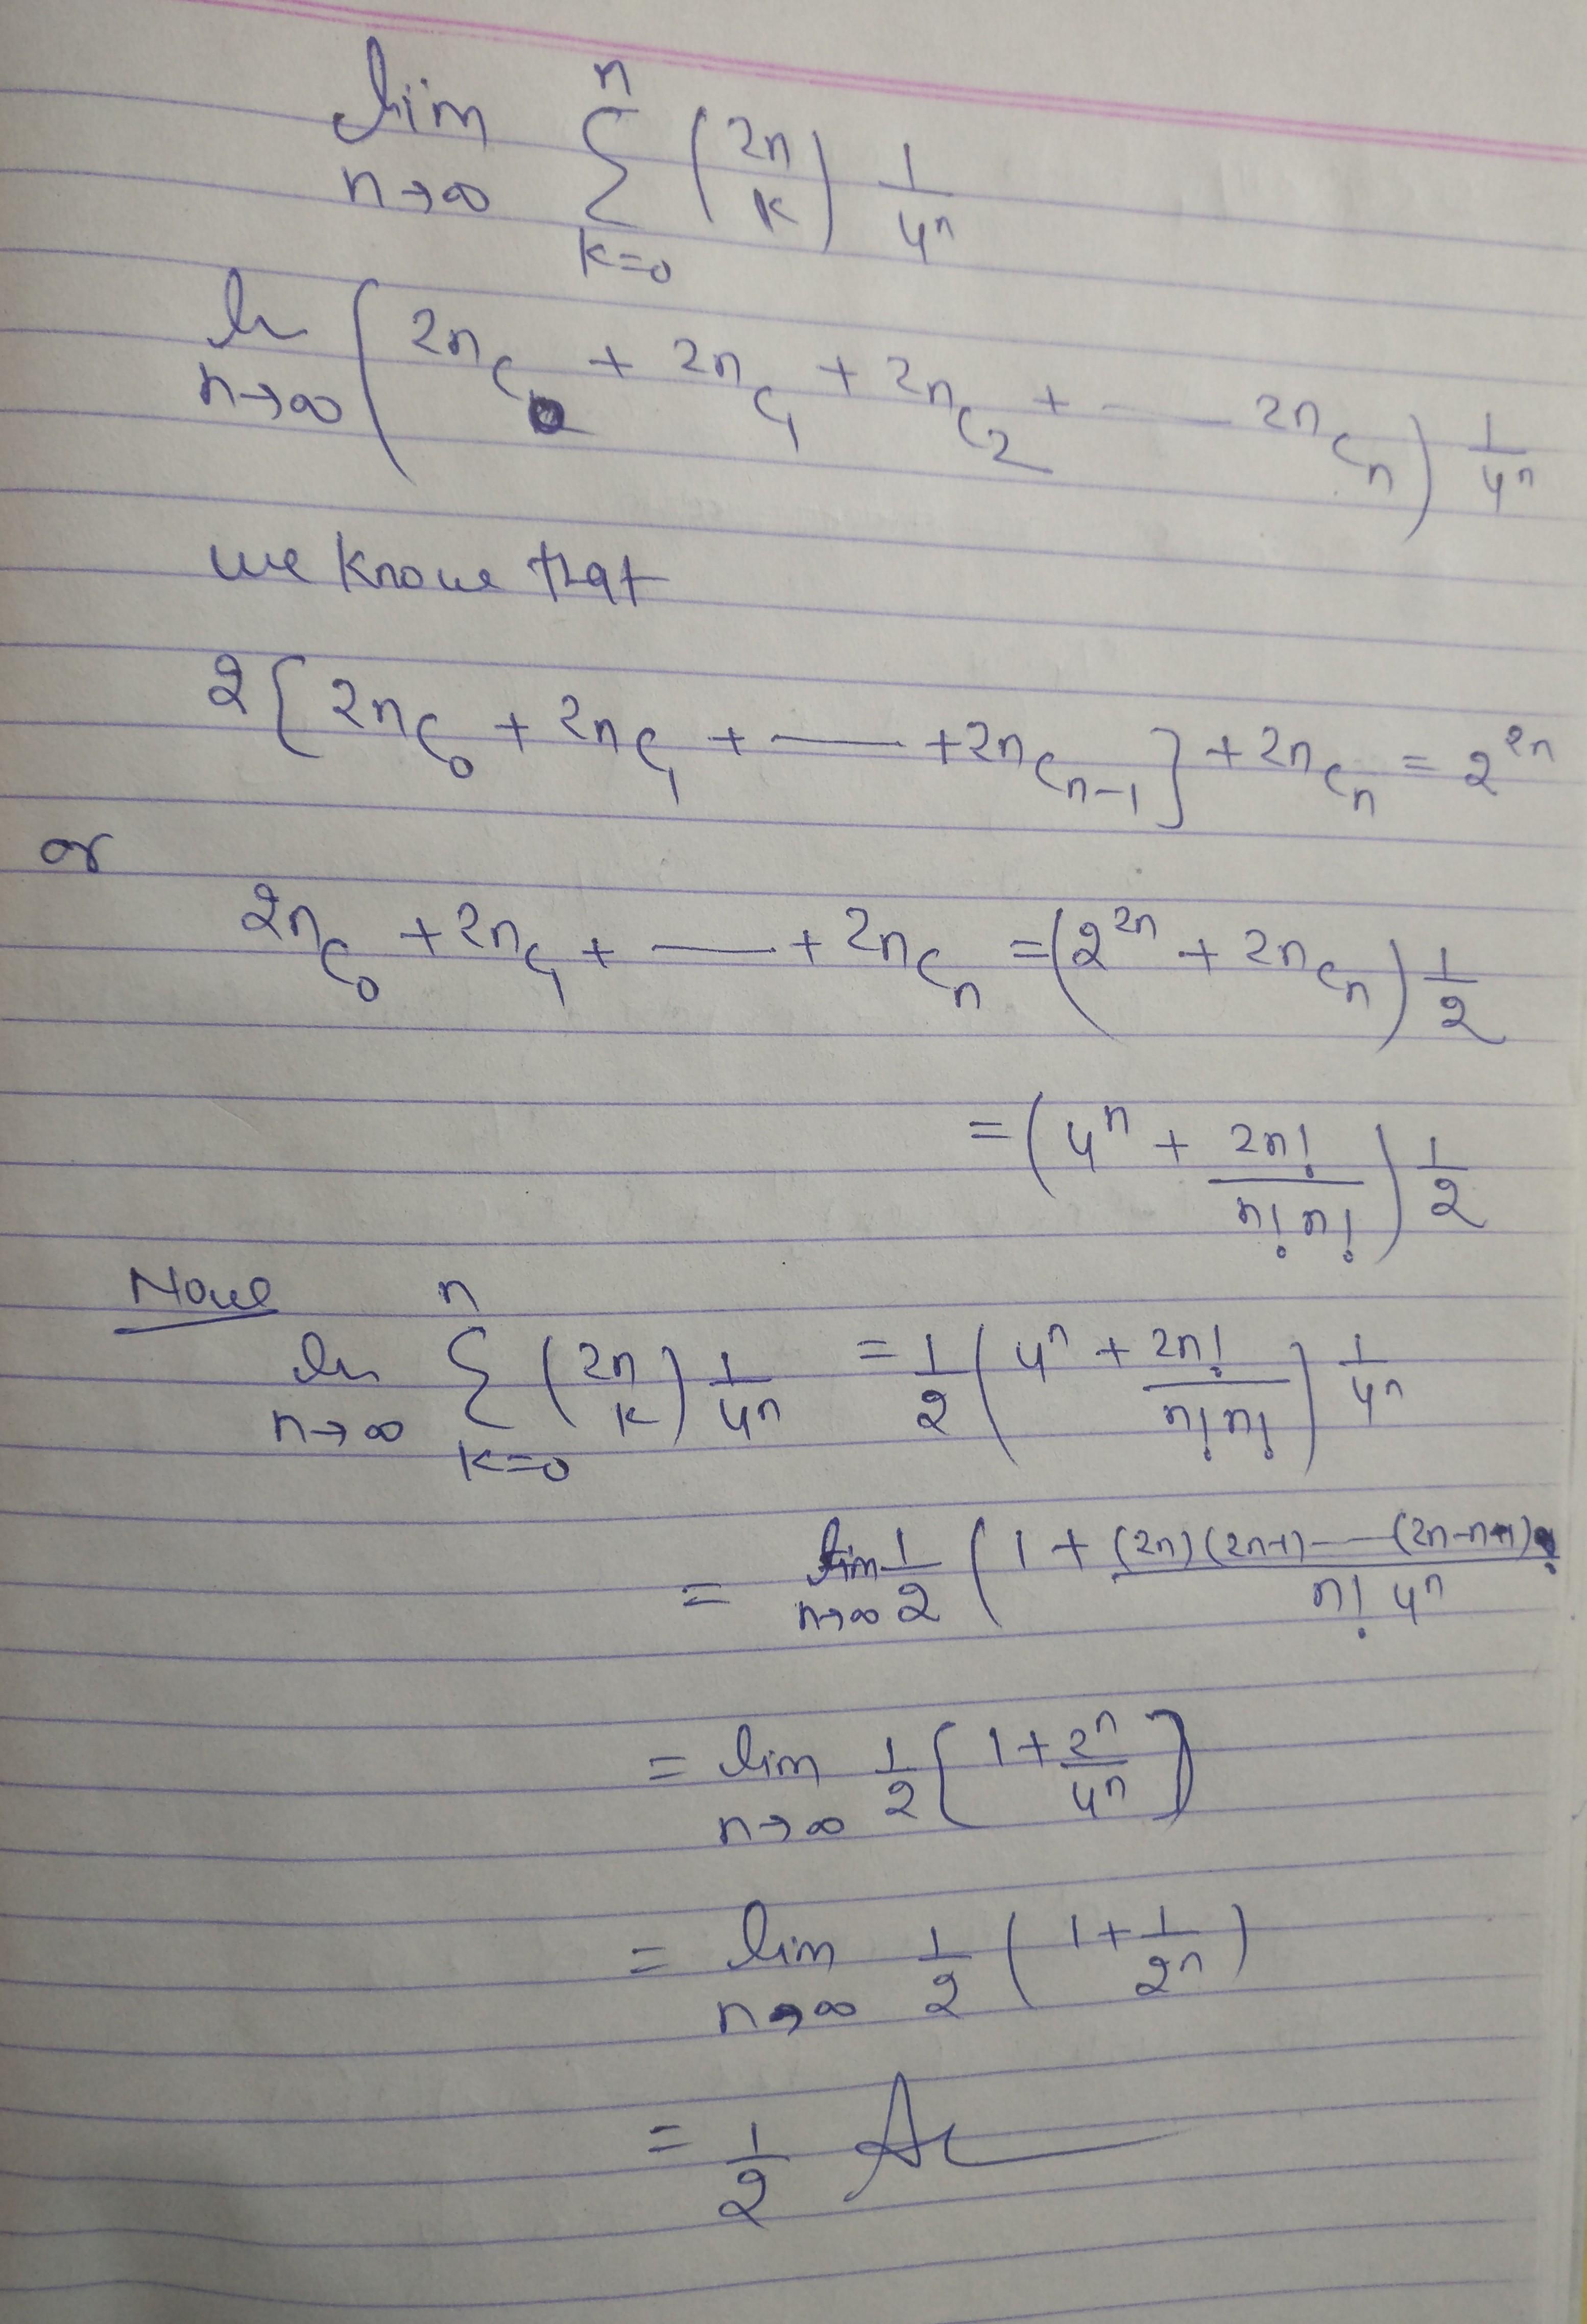 lim n→∞ n Σ k=0 (2n k) 1/4ⁿ
lim n→∞ (2n C₀ + 2n C₁ + 2n C₂ + — 2n Cₙ) 1/4ⁿ
we know that
2{2n C₀ + 2n C₁ + — + 2n Cₙ₋₁} + 2n Cₙ = 2²ⁿ
or
2n C₀ + 2n C₁ + — + 2n Cₙ = (2²ⁿ + 2n Cₙ) 1/2
= (4ⁿ + 2n!/n! n!) 1/2
Now
lim n→∞ n Σ k=0 (2n k) 1/4ⁿ = 1/2 (4ⁿ + 2n!/n! n!) 1/4ⁿ
= lim n→∞ 1/2 (1 + (2n)(2n-1) — (2n-n+1)/n! 4ⁿ
= lim n→∞ 1/2 [1 + 2ⁿ/4ⁿ]
= lim n→∞ 1/2 (1 + 1/2ⁿ)
= 1/2